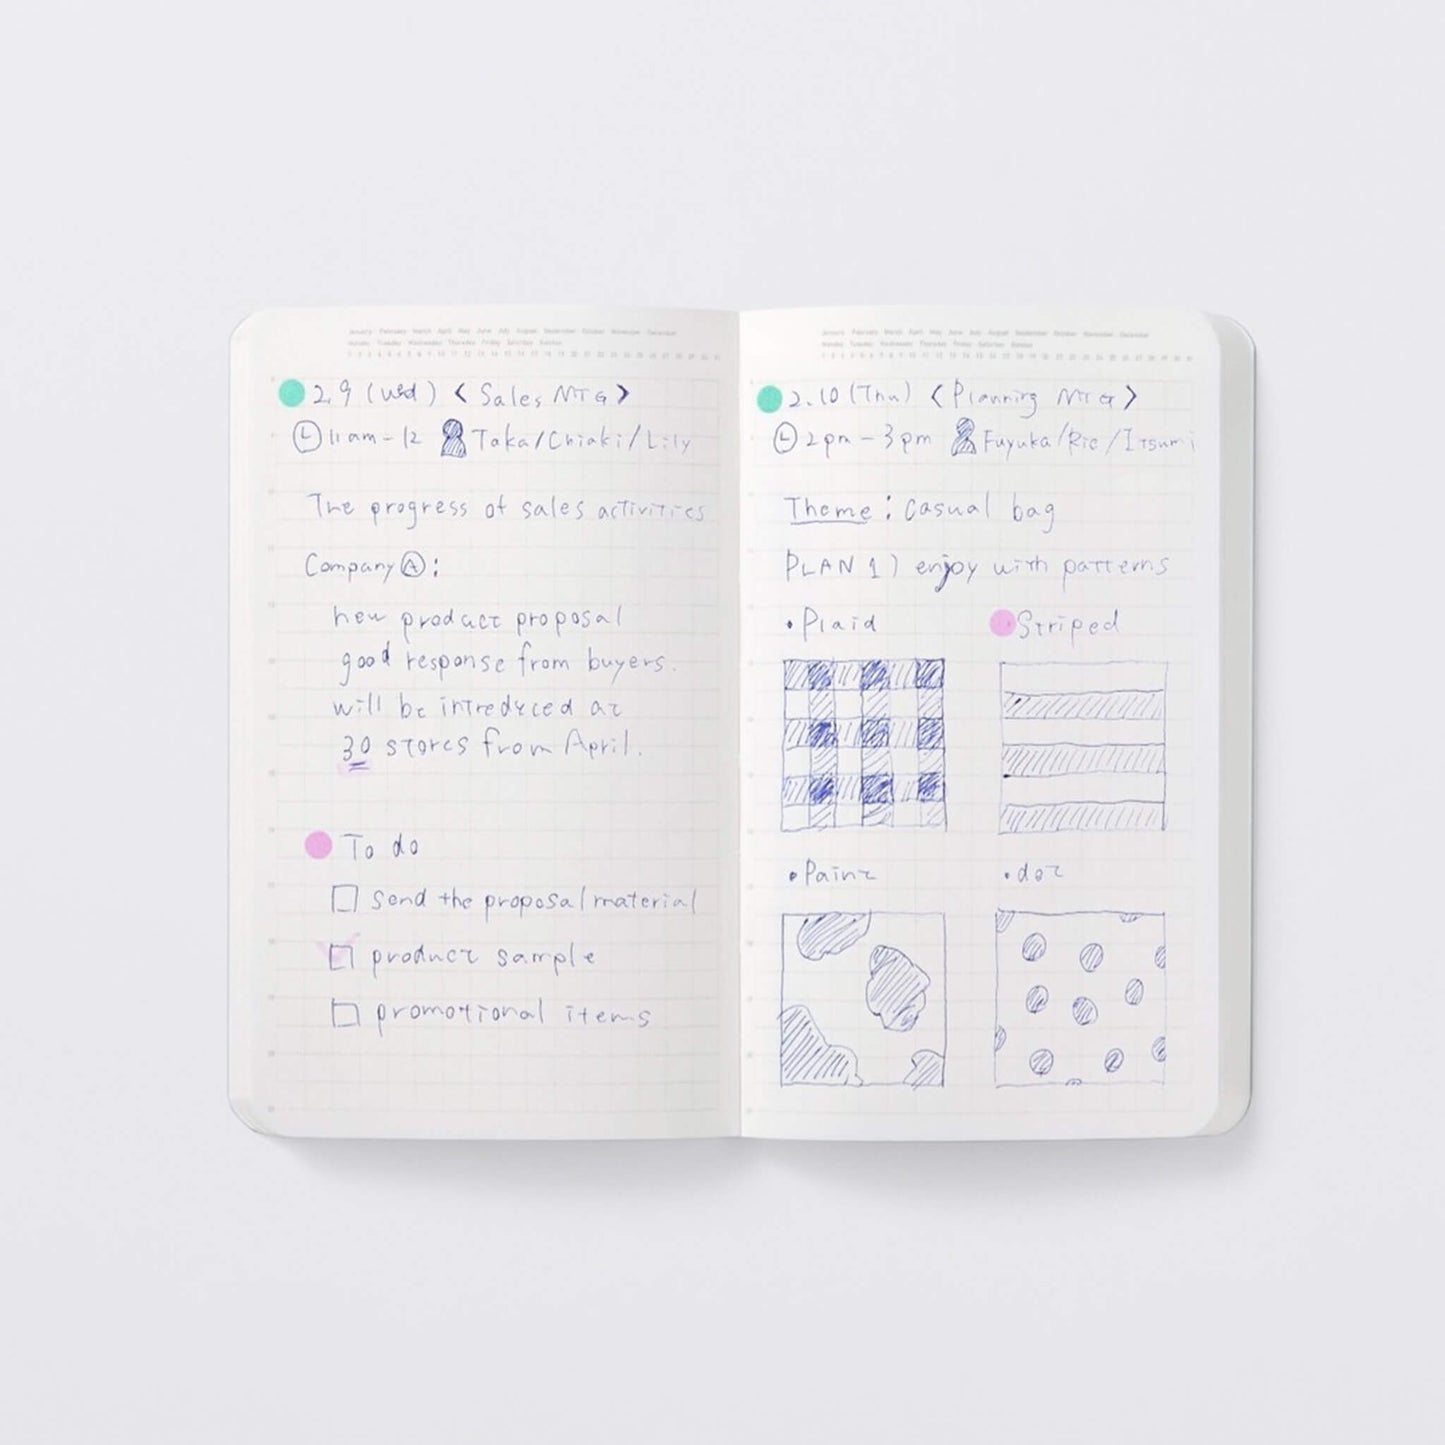 January February March April May June July August September October November December
Monday Tuesday Wednesday Thursday Friday Saturday Sunday
2.9 (Wed) < Sales MTG >
11am - 12 Taka/Chiaki/Lily
The progress of sales activities
Company Ⓐ:
new product proposal
good response from buyers.
will be introduced at
30 stores from April.
To do
send the proposal material
product sample
promotional items
January February March April May June July August September October November December
Monday Tuesday Wednesday Thursday Friday Saturday Sunday
2.10 (Thu) < Planning MTG >
2pm - 3pm Fuyuka/Rie/Itsumi
Theme: casual bag
PLAN 1) enjoy with patterns
• Plaid • Striped
• Paint • dot